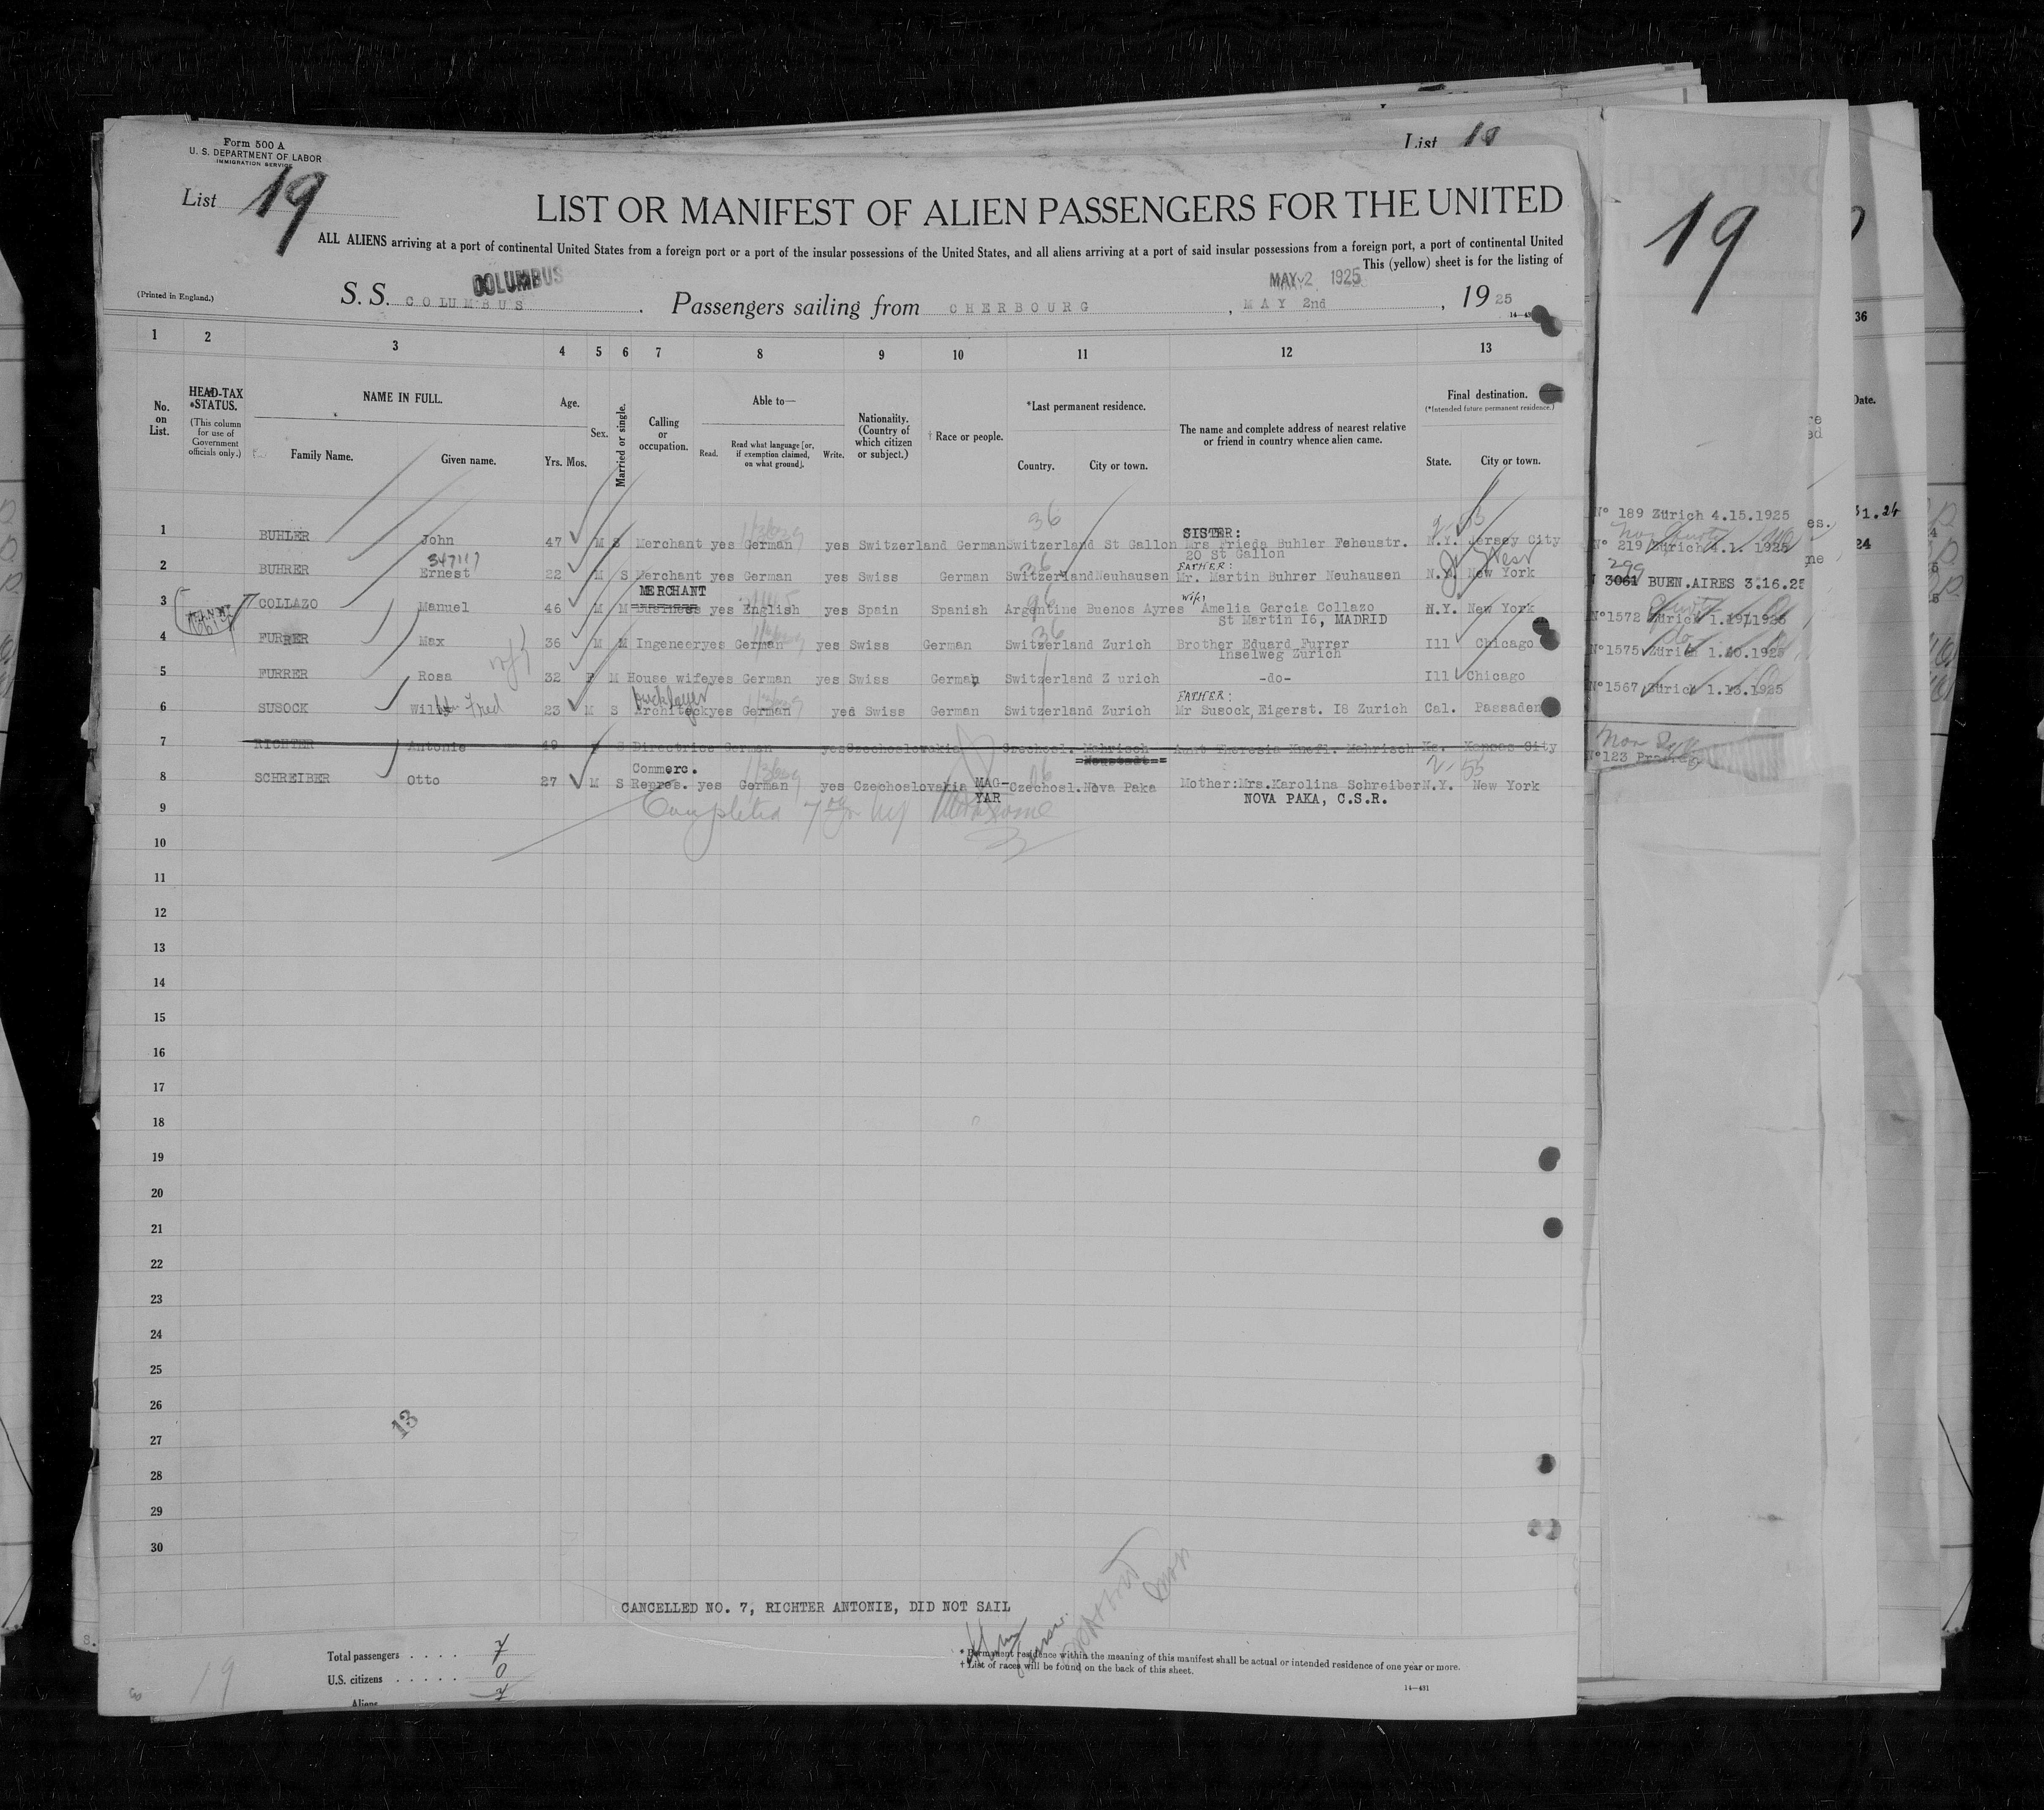 Form 500 A
U. S. DEPARTMENT OF LABOR
IMMIGRATION SERVICE
List 19
List 19
19
LIST OR MANIFEST OF ALIEN PASSENGERS FOR THE UNITED
ALL ALIENS arriving at a port of continental United States from a foreign port or a port of the insular possessions of the United States, and all aliens arriving at a port of said insular possessions from a foreign port, a port of continental United
This (yellow) sheet is for the listing of
(Printed in England.)
COLUMBUS
MAY 2 1925
S. S. COLUMBUS. Passengers sailing from CHERBOURG, MAY 2nd, 1925
1 2 3 4 5 6 7 8 9 10 11 12 13
No. on List.
HEAD-TAX *STATUS.
(This column for use of Government officials only.)
NAME IN FULL.
Family Name. Given name.
Age.
Yrs. Mos.
Sex.
Married or single.
Calling or occupation.
Able to—
Read. Read what language [or, if exemption claimed, on what ground]. Write.
Nationality. (Country of which citizen or subject.)
† Race or people.
*Last permanent residence.
Country. City or town.
The name and complete address of nearest relative or friend in country whence alien came.
Final destination.
(*Intended future permanent residence.)
State. City or town.
36
Date.
1 BUHLER John 47 M S Merchant yes German yes Switzerland German Switzerland St Gallon SISTER: Mrs Frieda Buhler Feheustr. 20 St Gallon N.Y. Jersey City
Nº 189 Zürich 4.15.1925
347117
2 BUHRER Ernest 22 M S Merchant yes German yes Swiss German Switzerland Neuhausen FATHER: Mr. Martin Buhrer Neuhausen N.Y. New York
Nº 219 Zürich 4.1. 1925
3 COLLAZO Manuel 46 M M MERCHANT Business yes English yes Spain Spanish Argentine Buenos Ayres wife Amelia Garcia Collazo St Martin I6, MADRID N.Y. New York
299
3061 BUEN.AIRES 3.16.25
4 FURRER Max 36 M M Ingeneer yes German yes Swiss German Switzerland Zurich Brother Eduard Furrer Inselweg Zurich Ill Chicago
5 FURRER Rosa 32 F M House wife yes German yes Swiss German Switzerland Z urich -do- Ill Chicago
Nº1575 Zürich 1.10.1925
6 SUSOCK Fred 23 M S Architeck yes German yes Swiss German Switzerland Zurich FATHER: Mr Susock, Eigerst. I8 Zurich Cal. Passaden
Nº1567 Zürich 1.13.1925
7 RICHTER Antonie 49 F S Directrice German yes Czechoslovakia Czechosl. Mahrisch Neustadt Aunt Theresia Knefl. Mahrisch Ks. Kansas City
Nº123
8 SCHREIBER Otto 27 M S Commerc. Repres. yes German yes Czechoslovakia MAG-YAR Czechosl. Nova Paka Mother:Mrs.Karolina Schreiber NOVA PAKA, C.S.R. N.Y. New York
9
10
11
12
13
14
15
16
17
18
19
20
21
22
23
24
25
26
13
27
28
29
30
CANCELLED NO. 7, RICHTER ANTONIE, DID NOT SAIL
Total passengers . . . . . 7
U.S. citizens . . . . . . 0
Aliens 7
19
* Permanent residence within the meaning of this manifest shall be actual or intended residence of one year or more.
† List of races will be found on the back of this sheet.
14—431